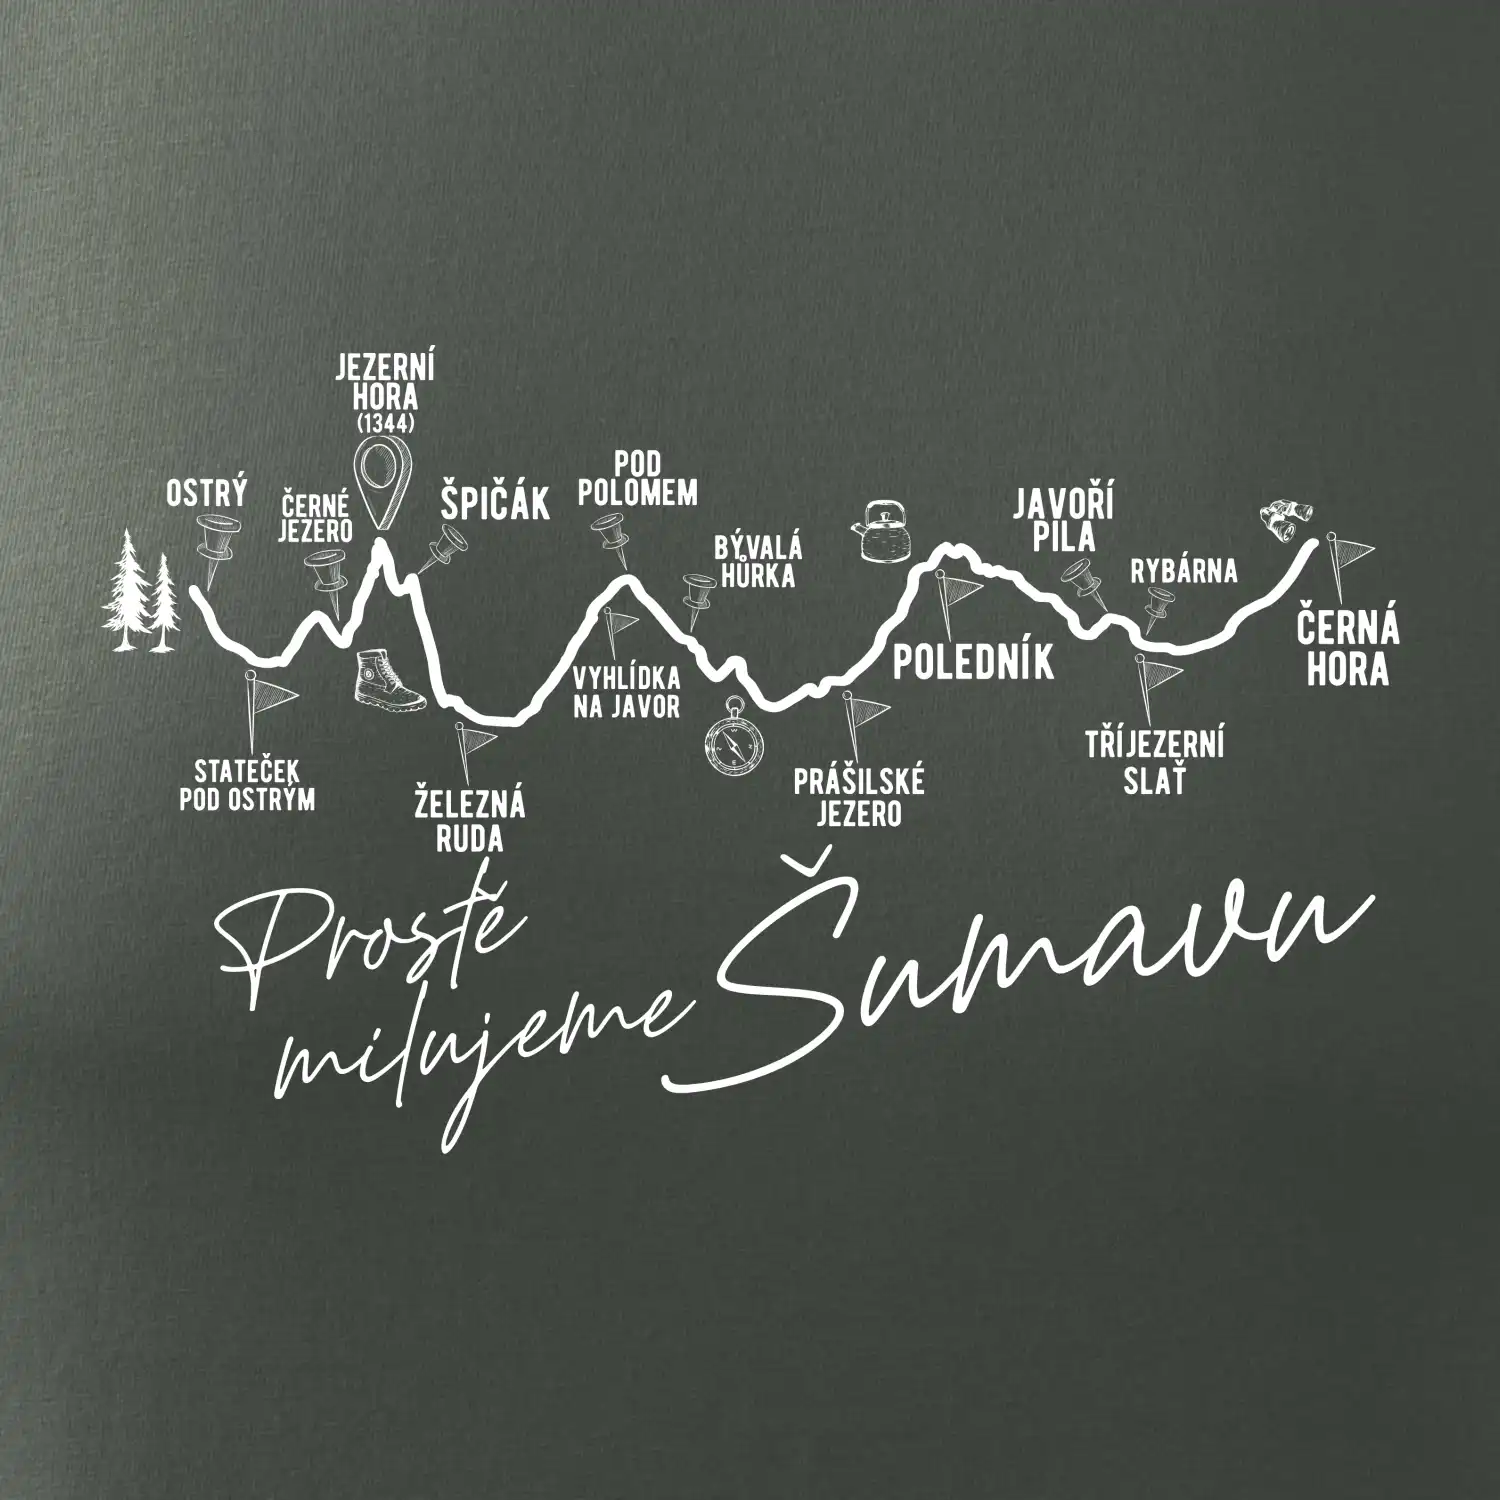 JEZERNÍ
HORA
(1344)
OSTRÝ
ČERNÉ
JEZERO
ŠPIČÁK
POD
POLOMEM
BÝVALÁ
HŮRKA
JAVOŘÍ
PILA
RYBÁRNA
ČERNÁ
HORA
POLEDNÍK
VYHLÍDKA
NA JAVOR
STATEČEK
POD OSTRÝM
ŽELEZNÁ
RUDA
PRÁŠILSKÉ
JEZERO
TŘÍJEZERNÍ
SLAŤ
Prostě
milujeme Šumavu